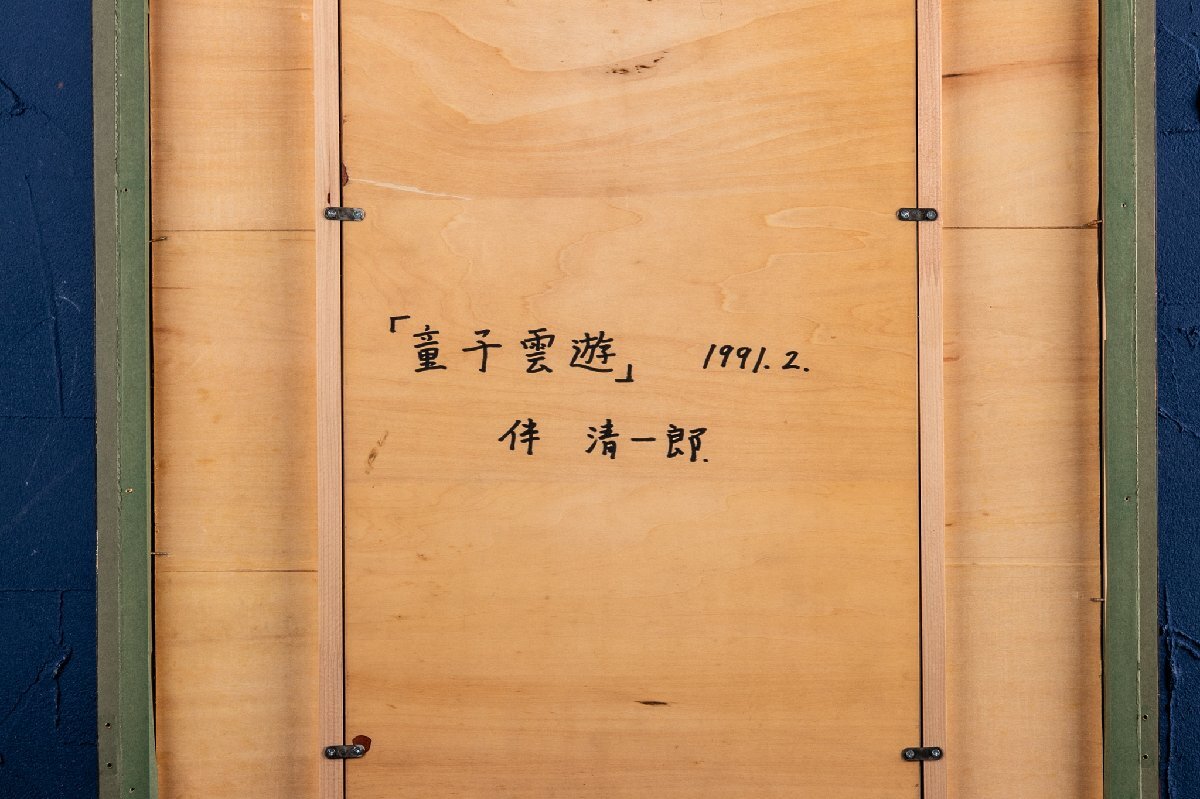 「童子雲遊」 1991.2.
伴 清一郎.